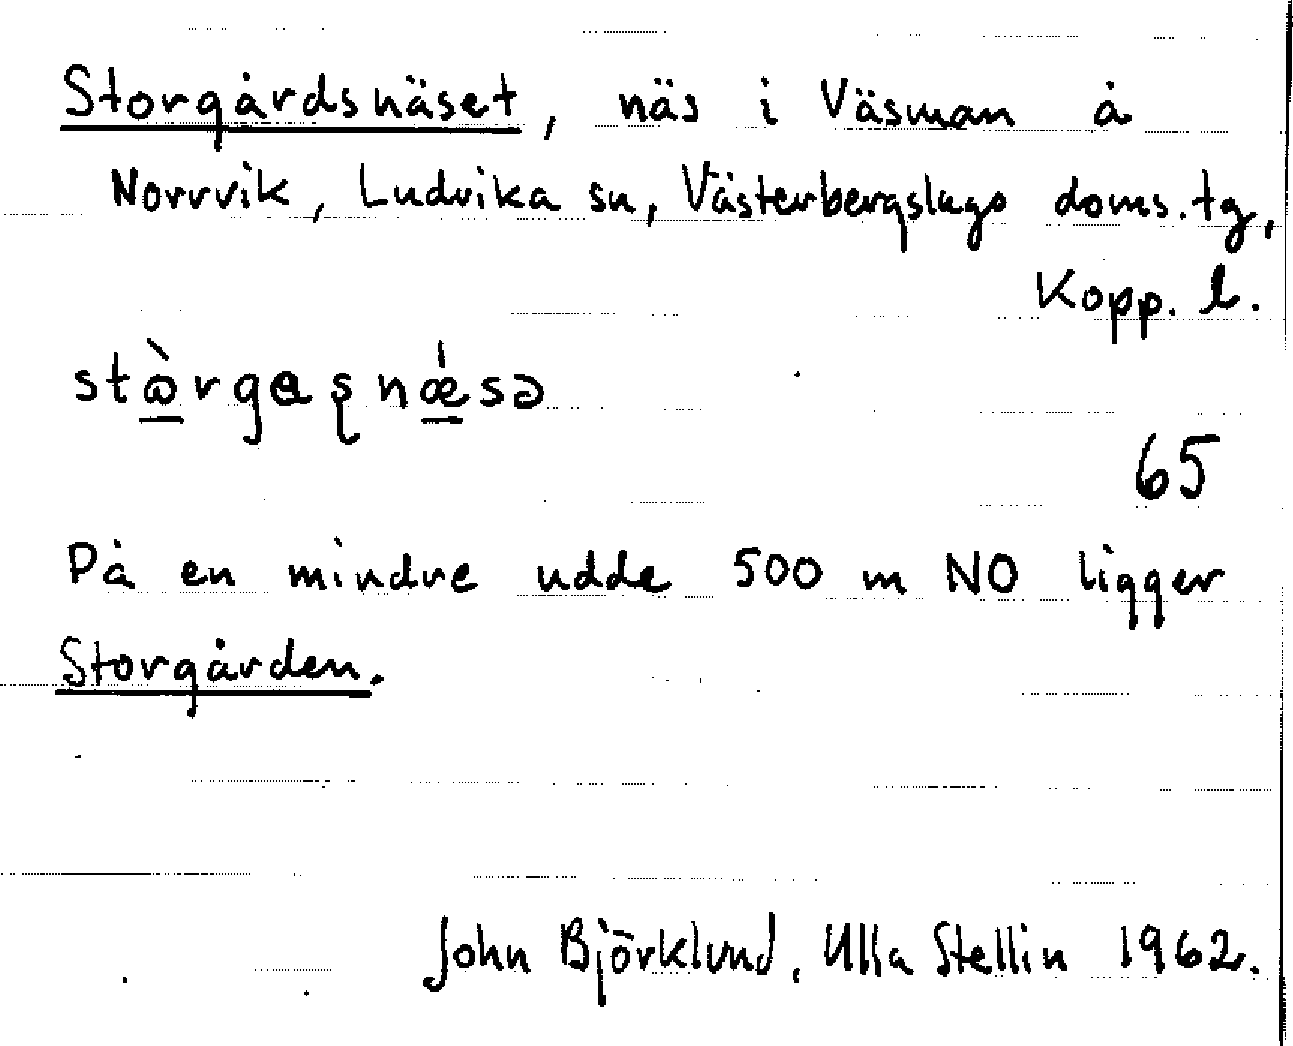 Storgårdsnäset, näs i Väsman å
Norrvik, Ludvika sn, Västerbergslags doms.tg,
Kopp. l.
65
På en mindre udde 500 m NO ligger
Storgården.
John Björklund, Ulla Stellin 1962.